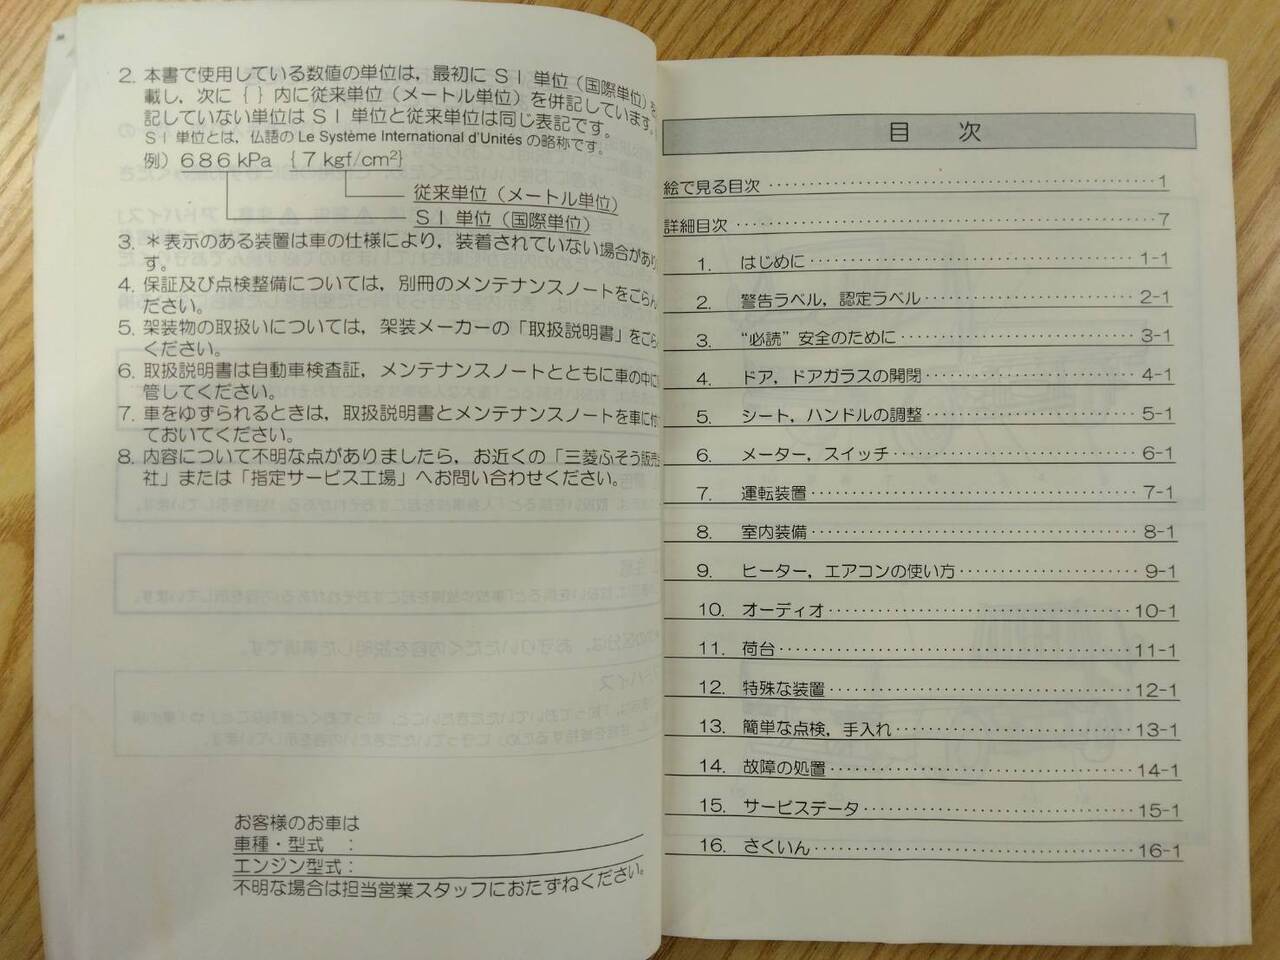 2. 本書で使用している数値の単位は，最初にＳＩ単位（国際単位）を
載し，次に { } 内に従来単位（メートル単位）を併記しています。
記していない単位はＳＩ単位と従来単位は同じ表記です。
ＳＩ単位とは，仏語の Le Système International d'Unités の略称です。
例）686 kPa {7 kgf/cm²}
従来単位（メートル単位）
ＳＩ単位（国際単位）
3. ＊表示のある装置は車の仕様により，装着されていない場合があり
す。
4. 保証及び点検整備については，別冊のメンテナンスノートをごらん
ださい。
5. 架装物の取扱いについては，架装メーカーの「取扱説明書」をごら
ください。
6. 取扱説明書は自動車検査証，メンテナンスノートとともに車の中に
管してください。
7. 車をゆずられるときは，取扱説明書とメンテナンスノートを車に付け
ておいてください。
8. 内容について不明な点がありましたら，お近くの「三菱ふそう販売
社」または「指定サービス工場」へお問い合わせください。
お客様のお車は
車種・型式　：
エンジン型式：
不明な場合は担当営業スタッフにおたずねください。
目　次
絵で見る目次 ･････････････ 1
詳細目次 ･････････････ 7
1. はじめに ･････････････ 1-1
2. 警告ラベル，認定ラベル ･････････････ 2-1
3. “必読” 安全のために ･････････････ 3-1
4. ドア，ドアガラスの開閉 ･････････････ 4-1
5. シート，ハンドルの調整 ･････････････ 5-1
6. メーター，スイッチ ･････････････ 6-1
7. 運転装置 ･････････････ 7-1
8. 室内装備 ･････････････ 8-1
9. ヒーター，エアコンの使い方 ･････････････ 9-1
10. オーディオ ･････････････ 10-1
11. 荷台 ･････････････ 11-1
12. 特殊な装置 ･････････････ 12-1
13. 簡単な点検，手入れ ･････････････ 13-1
14. 故障の処置 ･････････････ 14-1
15. サービスデータ ･････････････ 15-1
16. さくいん ･････････････ 16-1